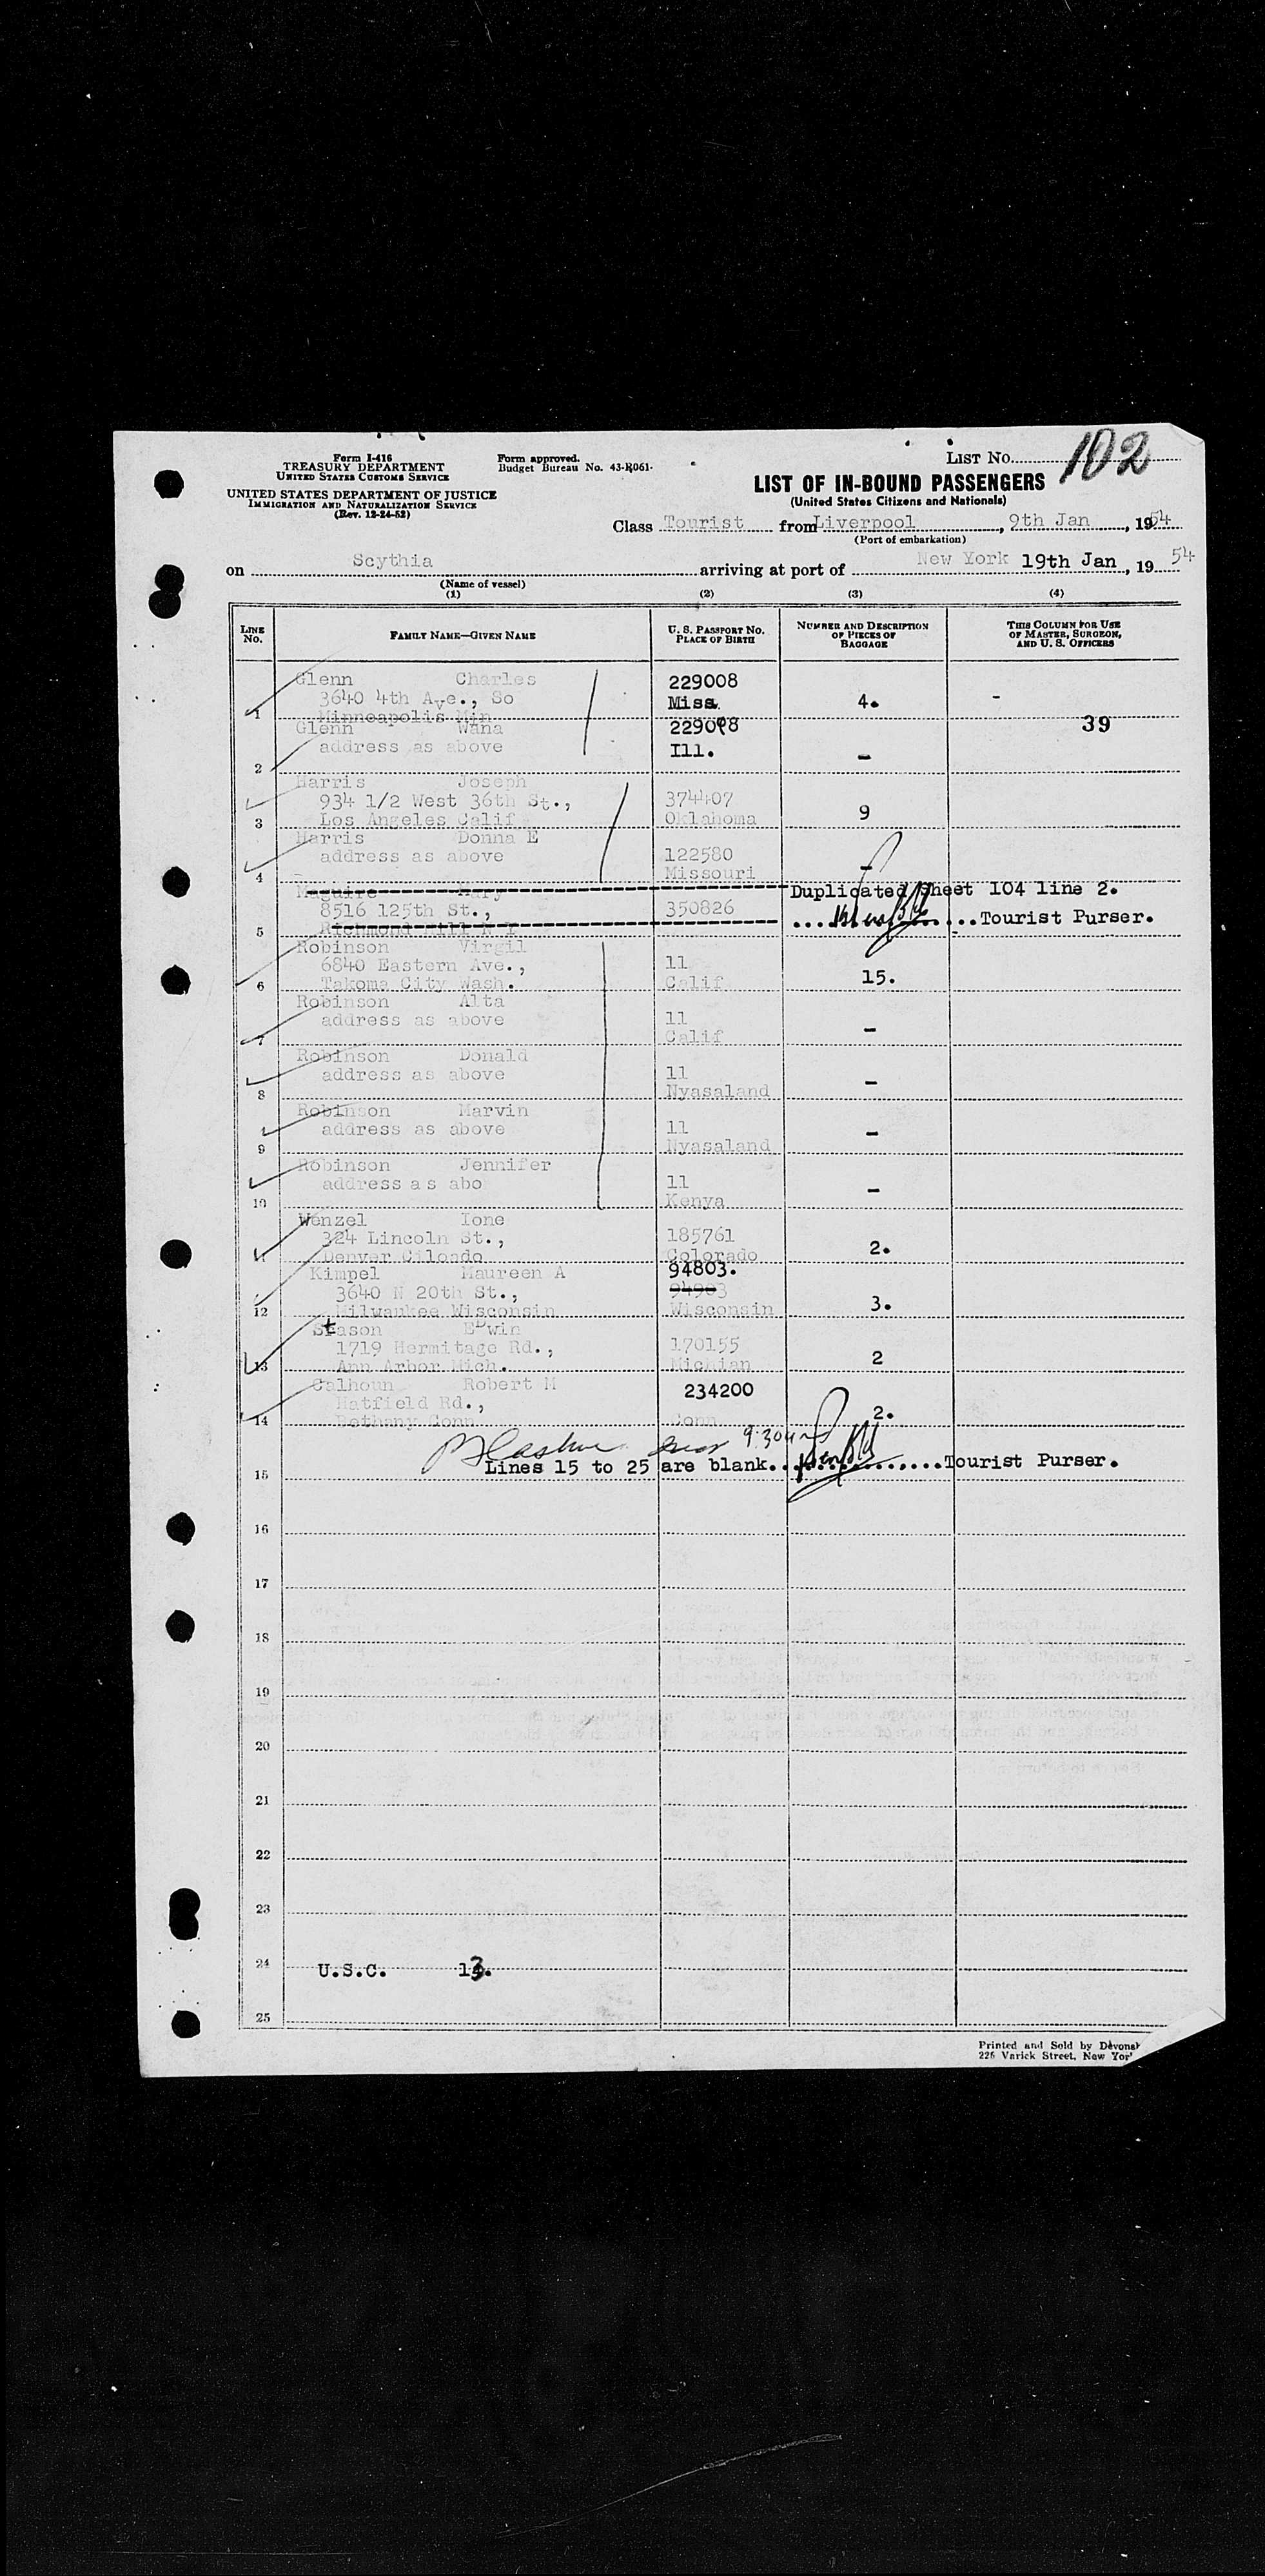 Form I-416
TREASURY DEPARTMENT
UNITED STATES CUSTOMS SERVICE
UNITED STATES DEPARTMENT OF JUSTICE
IMMIGRATION AND NATURALIZATION SERVICE
(Rev. 12-24-52)
Form approved.
Budget Bureau No. 43-R061.
LIST No. 102
LIST OF IN-BOUND PASSENGERS
(United States Citizens and Nationals)
Class Tourist from Liverpool, 9th Jan, 1954
(Port of embarkation)
on Scythia arriving at port of New York 19th Jan, 19 54
(Name of vessel)
(1) (2) (3) (4)
LINE NO. FAMILY NAME—GIVEN NAME U. S. PASSPORT NO. PLACE OF BIRTH NUMBER AND DESCRIPTION OF PIECES OF BAGGAGE THIS COLUMN FOR USE OF MASTER, SURGEON, AND U. S. OFFICERS
Glenn Charles 229008
3640 4th Ave., So Miss. 4. -
1 Minneapolis Min
Glenn Wana 229098 39
address as above Ill. -
2
Harris Joseph
934 1/2 West 36th St., 374407
3 Los Angeles Calif Oklahoma 9
Harris Donna E
address as above 122580 -
4 Missouri
Maguire Mary Duplicated sheet 104 line 2.
8516 125th St., 350826 Tourist Purser.
5 Richmond Hill N Y
Robinson Virgil
6840 Eastern Ave., 11
6 Takoma City Wash. Calif 15.
Robinson Alta
address as above 11
7 Calif -
Robinson Donald
address as above 11
8 Nyasaland -
Robinson Marvin
address as above 11
9 Nyasaland -
Robinson Jennifer
address as abo 11
10 Kenya -
Wenzel Ione
324 Lincoln St., 185761
11 Denver Ciloado Colorado 2.
Kimpel Maureen A 94803.
3640 N 20th St., 94903
12 Milwaukee Wisconsin Wisconsin 3.
Stason Edwin
1719 Hermitage Rd., 170155
13 Ann Arbor Mich. Michian 2
Calhoun Robert M 234200
Hatfield Rd.,
14 Bethany Conn Conn 2.
9:30
Lines 15 to 25 are blank. Tourist Purser.
15
16
17
18
19
20
21
22
23
24 U.S.C. 13.
25
Printed and Sold by
225 Varick Street, New